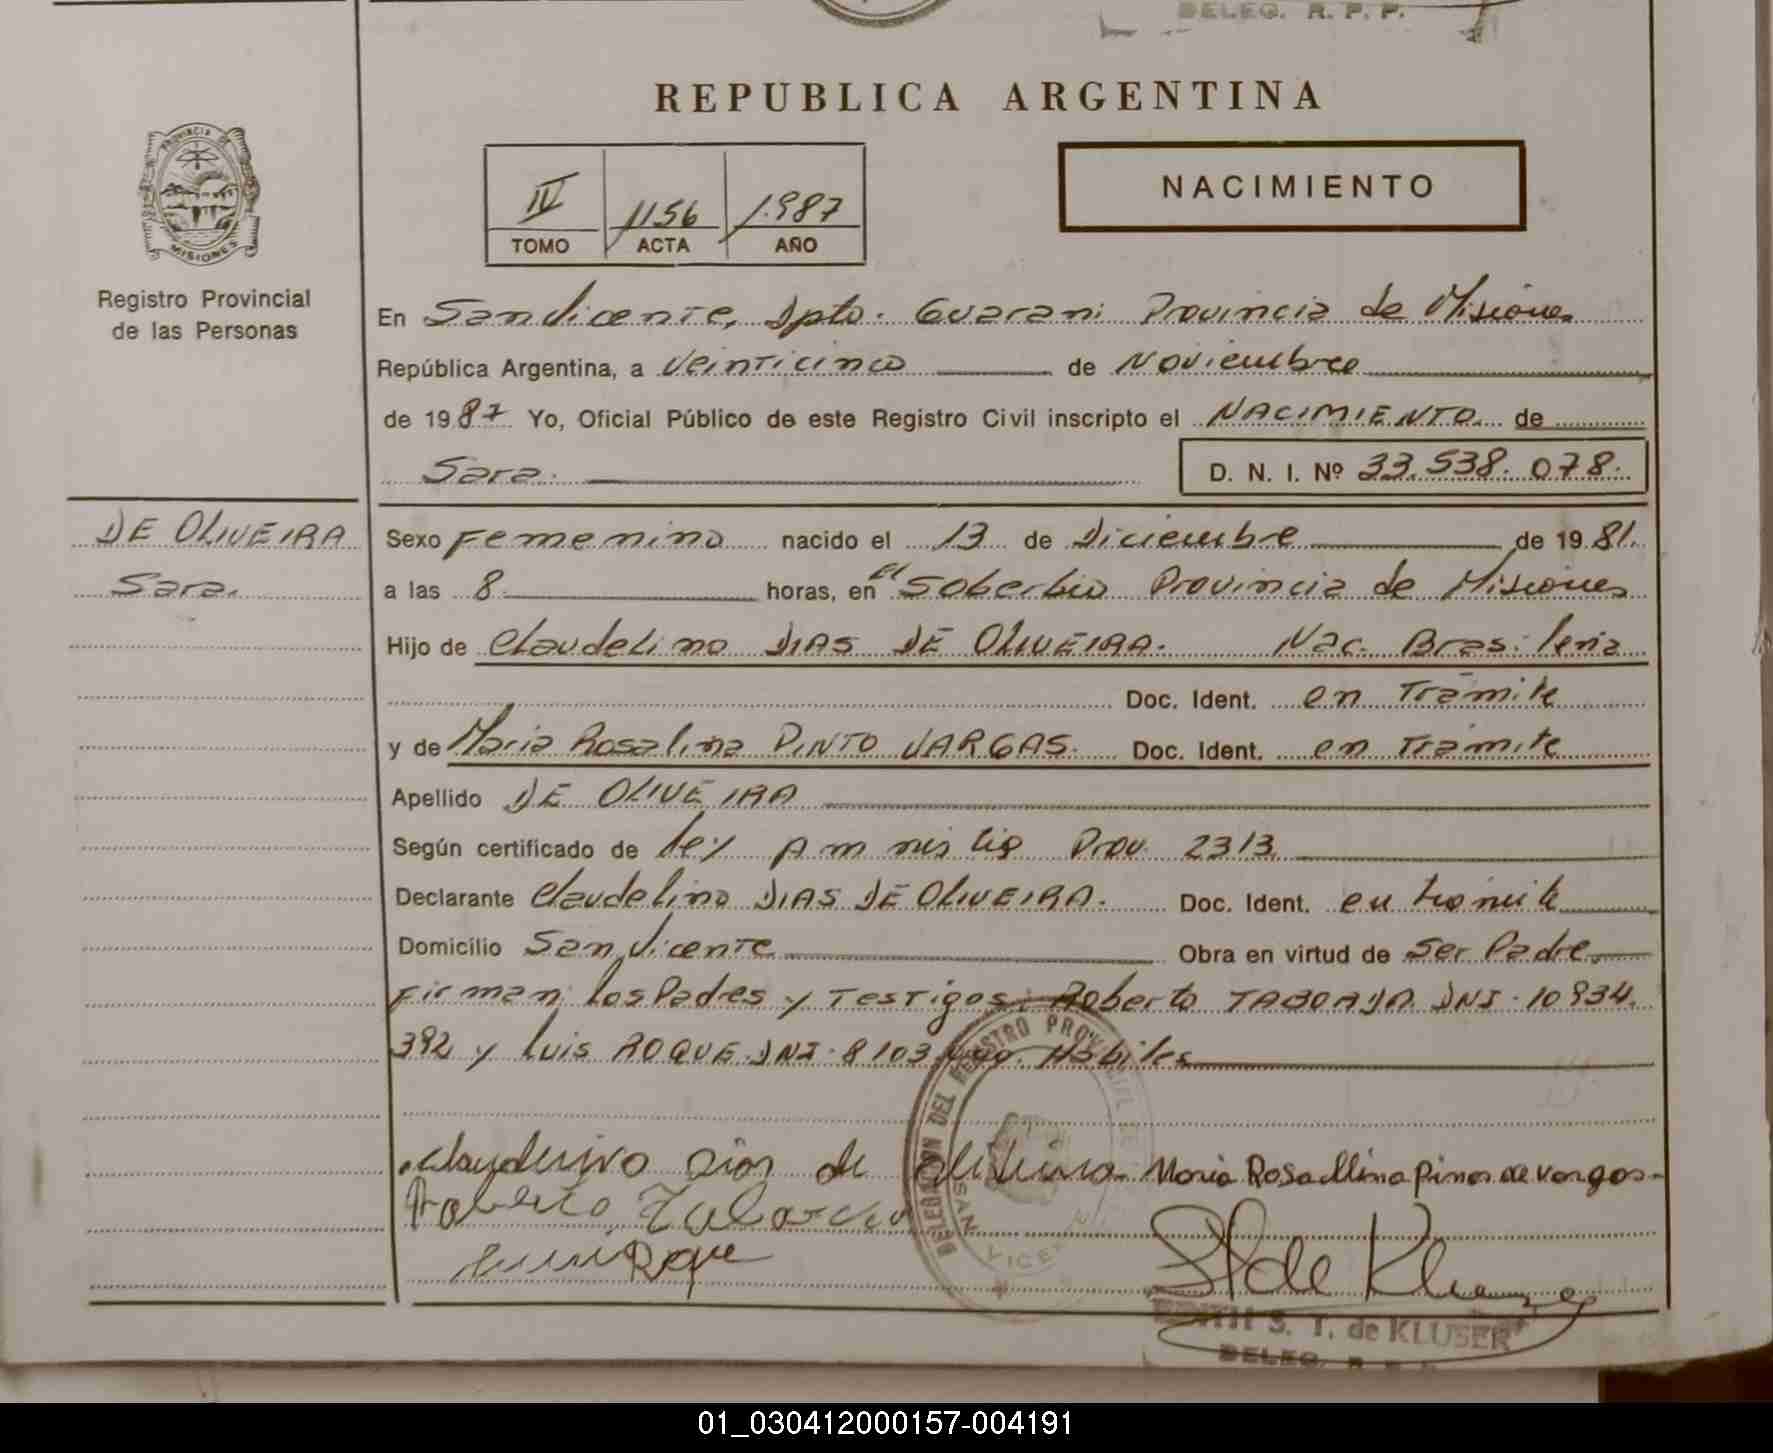 DELEG. R. P. P.
REPUBLICA ARGENTINA
PROVINCIA DE MISIONES
Registro Provincial
de las Personas
IV 1156 1.987
TOMO ACTA AÑO
NACIMIENTO
En San Vicente, Dpto. Guarani Provincia de Misiones
República Argentina, a veinticinco de Noviembre
de 1987 Yo, Oficial Público de este Registro Civil inscripto el NACIMIENTO de
Sara. D. N. I. Nº 33.538.078.
DE OLIVEIRA
Sara.
Sexo Femenino nacido el 13 de Diciembre de 1981.
a las 8 horas, en el Soberbio Provincia de Misiones
Hijo de Claudelino DIAS DE OLIVEIRA. Nac. Brasileria
Doc. Ident. en Tramite
y de Maria Rosalina PINTO VARGAS. Doc. Ident. en Tramite
Apellido DE OLIVEIRA
Según certificado de ley Amnistia Prov. 2313
Declarante Claudelino DIAS DE OLIVEIRA. Doc. Ident. en tramite
Domicilio San Vicente Obra en virtud de Ser Padre
Firman los Padres y Testigos: Roberto TABORDA DNI. 10934.
392 y Luis ROQUE. DNI. 8103 Habiles
DELEGACION DEL REGISTRO PROVINCIAL DE
SAN VICENTE
de Oliveira Maria Rosallina Pinos de Vargos
Roberto
Roque
EDITH S. T. de KLUSER
DELEG. R. P. P.
01_030412000157-004191